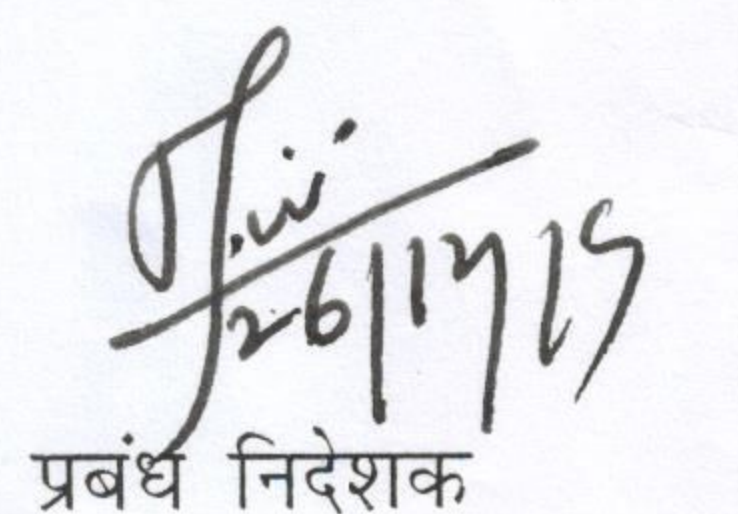 26/12/19
प्रबंध निदेशक